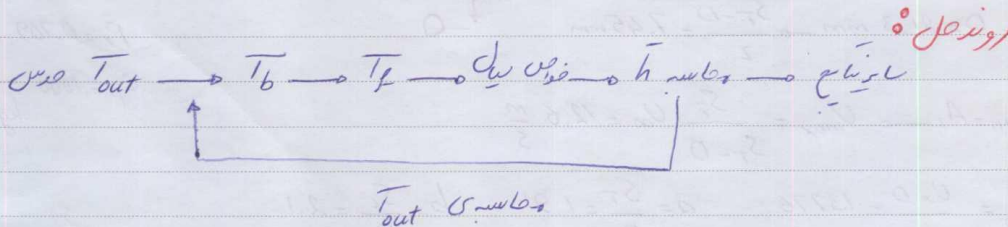 روند حل :
حدس T_out → T_b → T_f → خواص سیال → محاسبه h̄ → سایر نتایج
محاسبه‌ی T_out